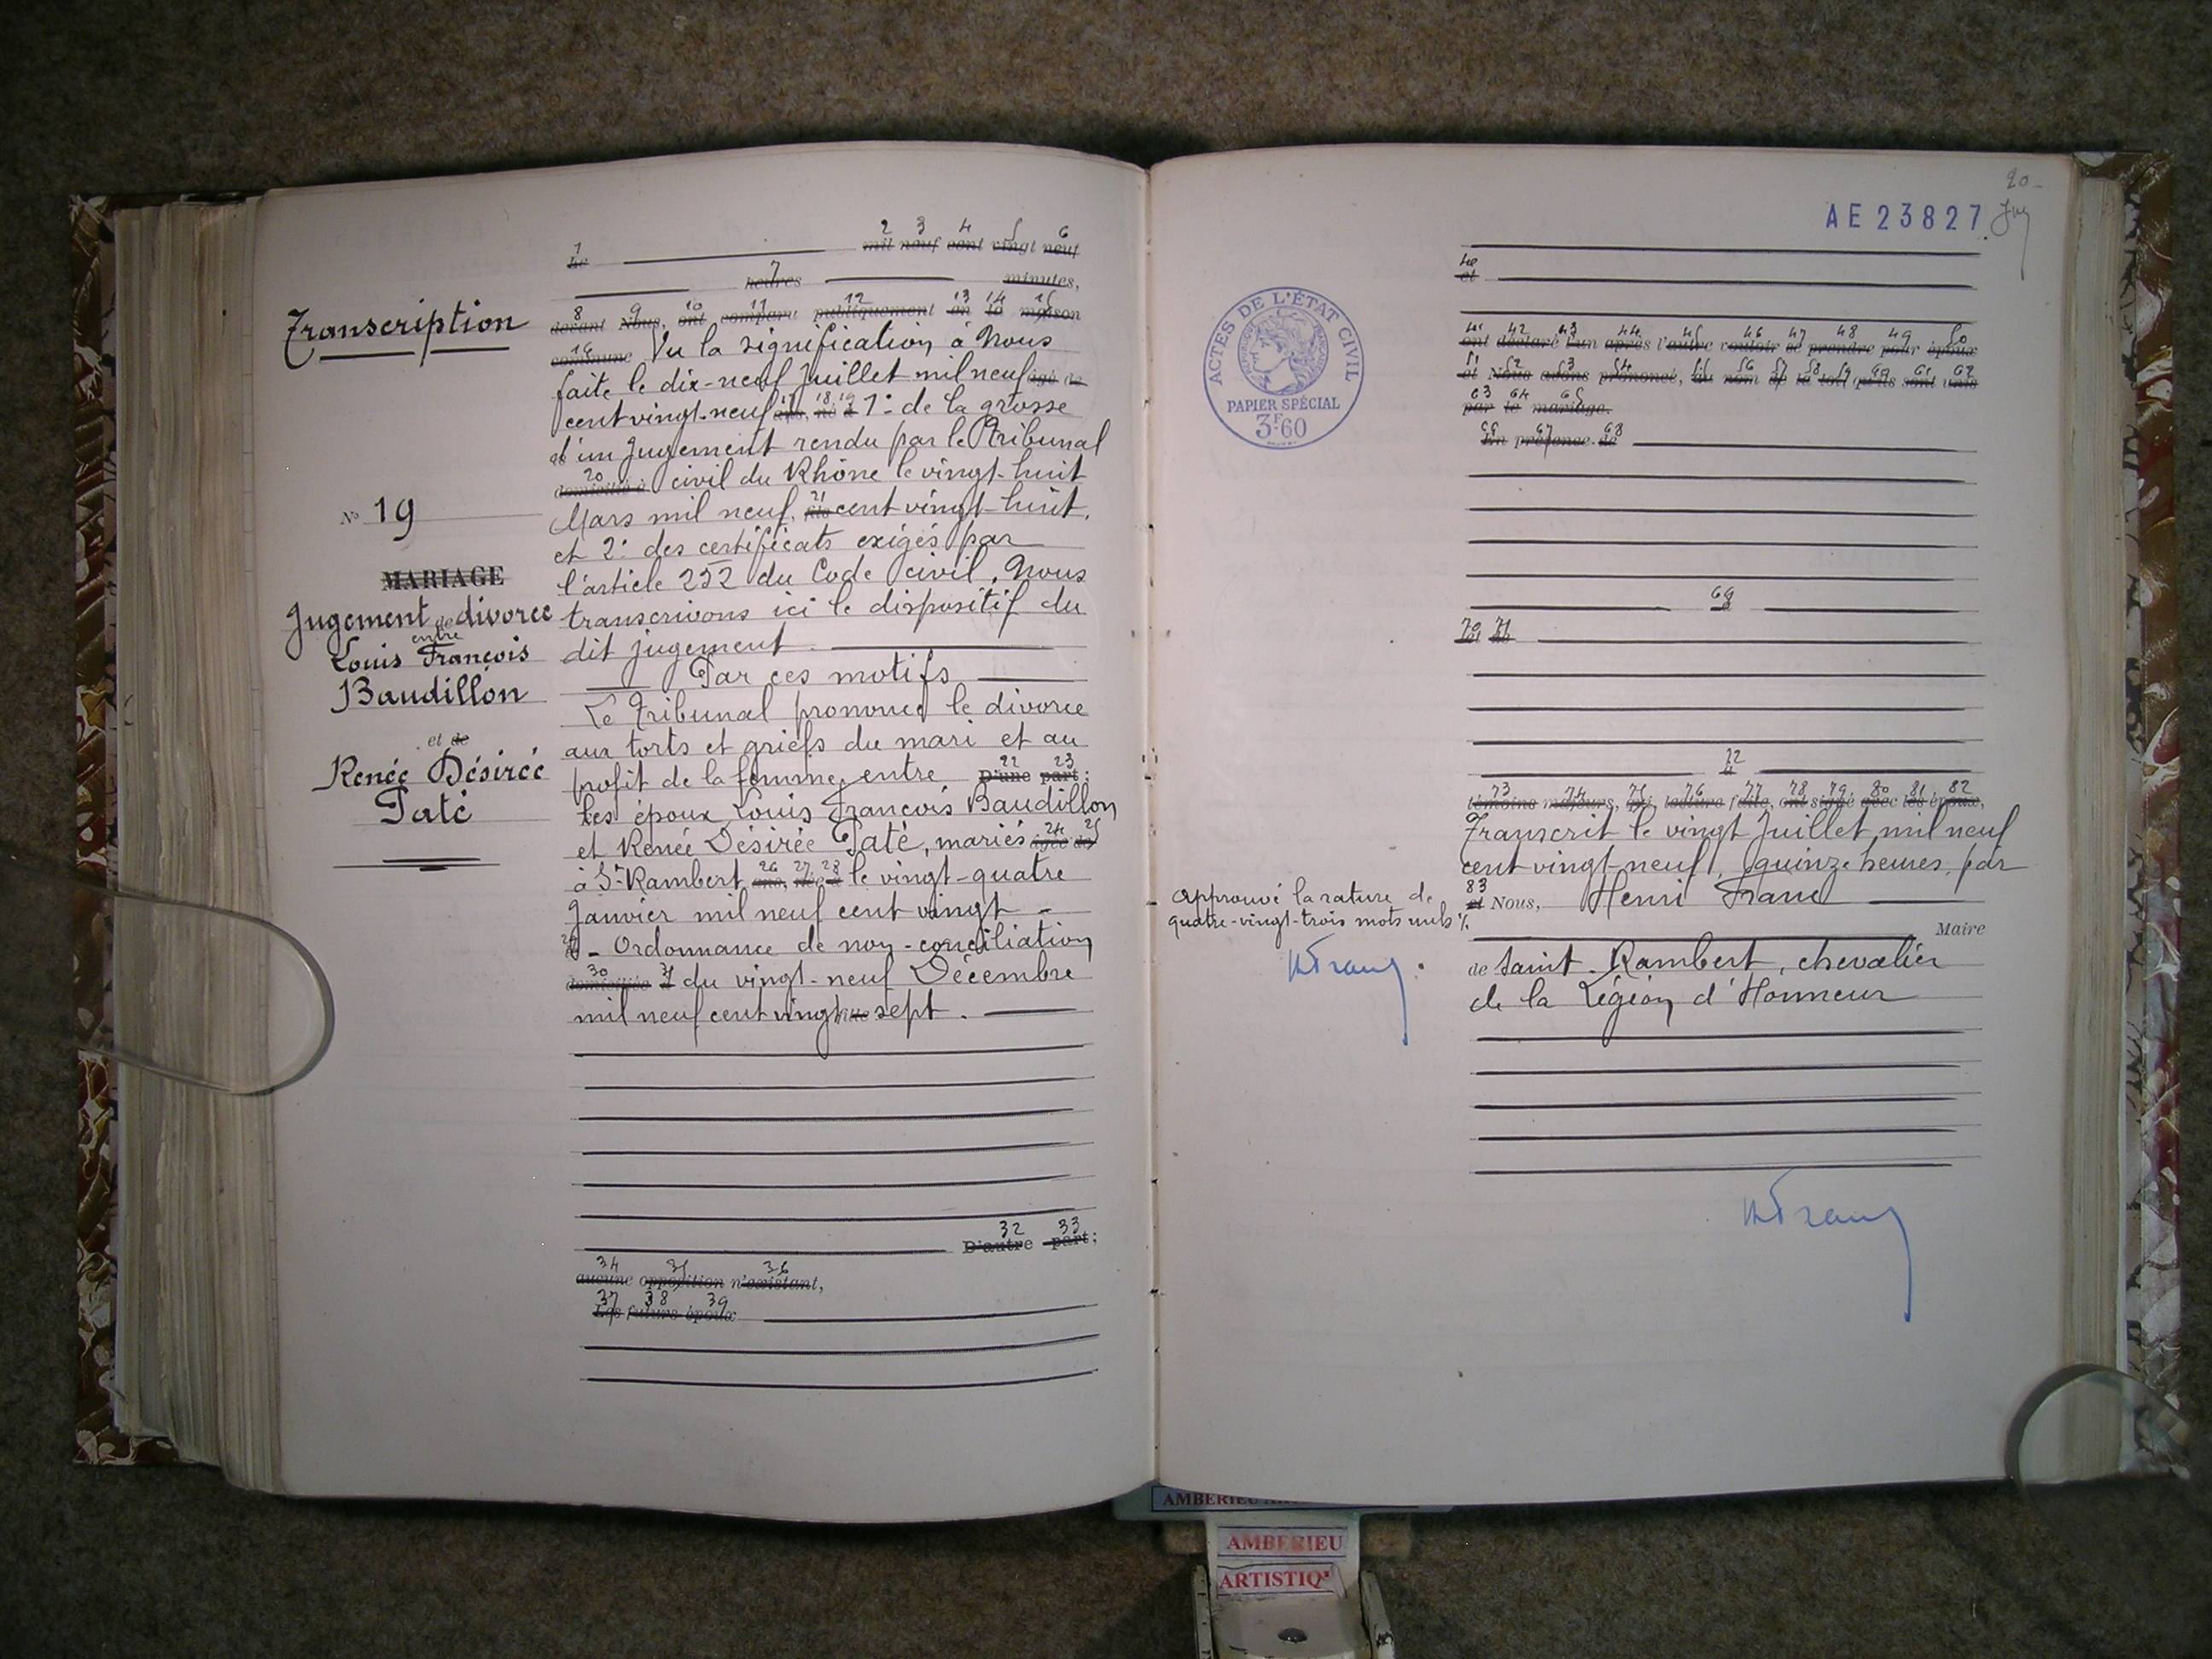 Transcription
N° 19
MARIAGE
Jugement de divorce
entre
Louis François
Baudillon
et de
Renée Désirée
Paté
1 2 3 4 5 6
Le mil neuf cent vingt neuf
7
heures minutes,
8 9 10 11 12 13 14 15
devant Nous, ont comparu publiquement en la maison
16
commune Vu la signification à Nous
faite le dix-neuf Juillet mil neuf âgé de
17 18 19
cent vingt-neuf ans, né à 1° de la grosse
d'un Jugement rendu par le Tribunal
20
domicilié à civil du Rhône le vingt-huit
21
Mars mil neuf, fils cent vingt-huit,
et 2° des certificats exigés par
l'article 252 du Code civil, Nous
transcrivons ici le dispositif du
dit jugement.
Par ces motifs
Le Tribunal prononce le divorce
aux torts et griefs du mari et au
22 23
profit de la femme, entre D'une part;
les époux Louis François Baudillon
24 25
et Renée Désirée Paté, mariés âgée de
26 27 28
à St-Rambert ans, née à le vingt-quatre
Janvier mil neuf cent vingt -
29
- Ordonnance de non-conciliation
30 31
domiciliée à du vingt-neuf Décembre
mil neuf cent vingt fille sept.
32 33
D'autre part;
34 35 36
aucune opposition n'existant,
37 38 39
Les futurs époux
20
AE 23827
ACTES DE L'ÉTAT CIVIL
PAPIER SPÉCIAL
3F60
40
et
41 42 43 44 45 46 47 48 49 50
ont déclaré l'un après l'autre vouloir se prendre pour époux
51 52 53 54 55 56 57 58 59 60 61 62
et Nous avons prononcé, au nom de la loi, qu'ils sont unis
63 64 65
par le mariage.
66 67 68
En présence de
69
70 71
72
73 74 75 76 77 78 79 80 81 82
témoins majeurs, qui, lecture faite, ont signé avec les époux,
Transcrit le vingt Juillet mil neuf
cent vingt-neuf, quinze heures, par
83
et Nous, Henri Franc
Maire
de Saint-Rambert, chevalier
de la Légion d'Honneur
Approuvé la rature de
quatre-vingt-trois mots nuls
HFranc
HFranc
AMBERIEU
AMBERIEU
ARTISTIQ